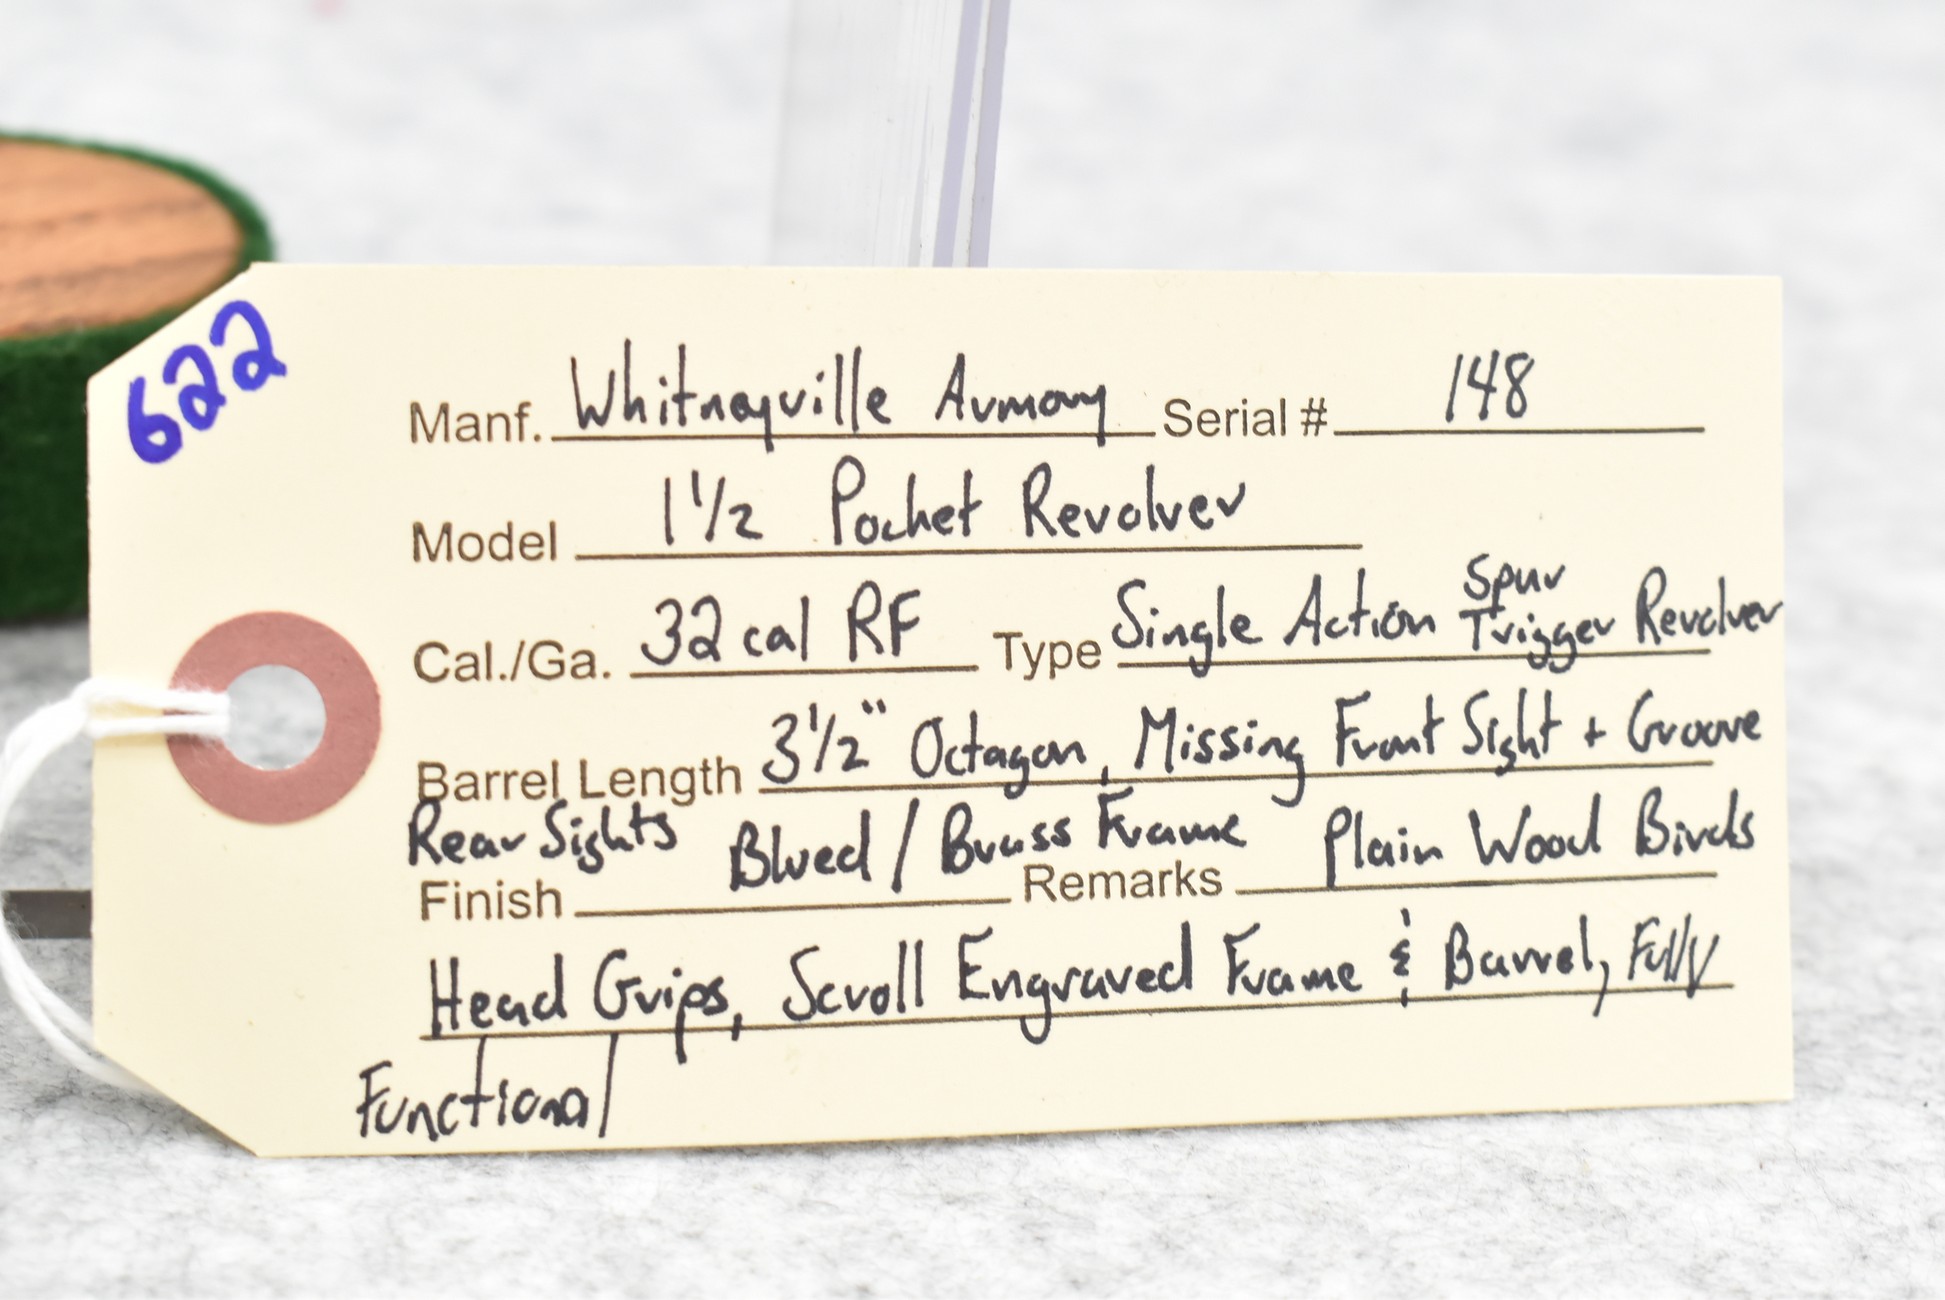 622
Manf. Whitneyville Armory Serial # 148
Model 1 1/2 Pocket Revolver
Cal./Ga. 32 cal RF Type Single Action Spur Trigger Revolver
Barrel Length 3 1/2" Octagon, Missing Front Sight + Groove
Rear Sights
Finish Blued / Brass Frame Remarks Plain Wood Birds
Head Grips, Scroll Engraved Frame & Barrel, Fully
Functional